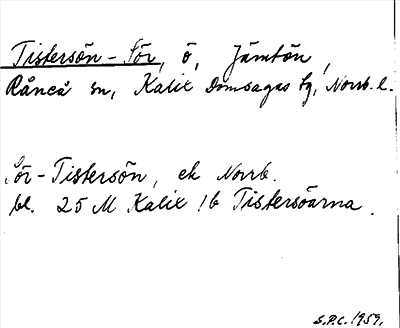 Tistersön-Sör, ö, Jämtön,
Råneå sn, Kalix Domsagas tg, Norrb. l.
Sör-Tistersön, ek Norrb.
bl. 25 M Kalix !b Tistersöarna.
S.P.C. 1959.